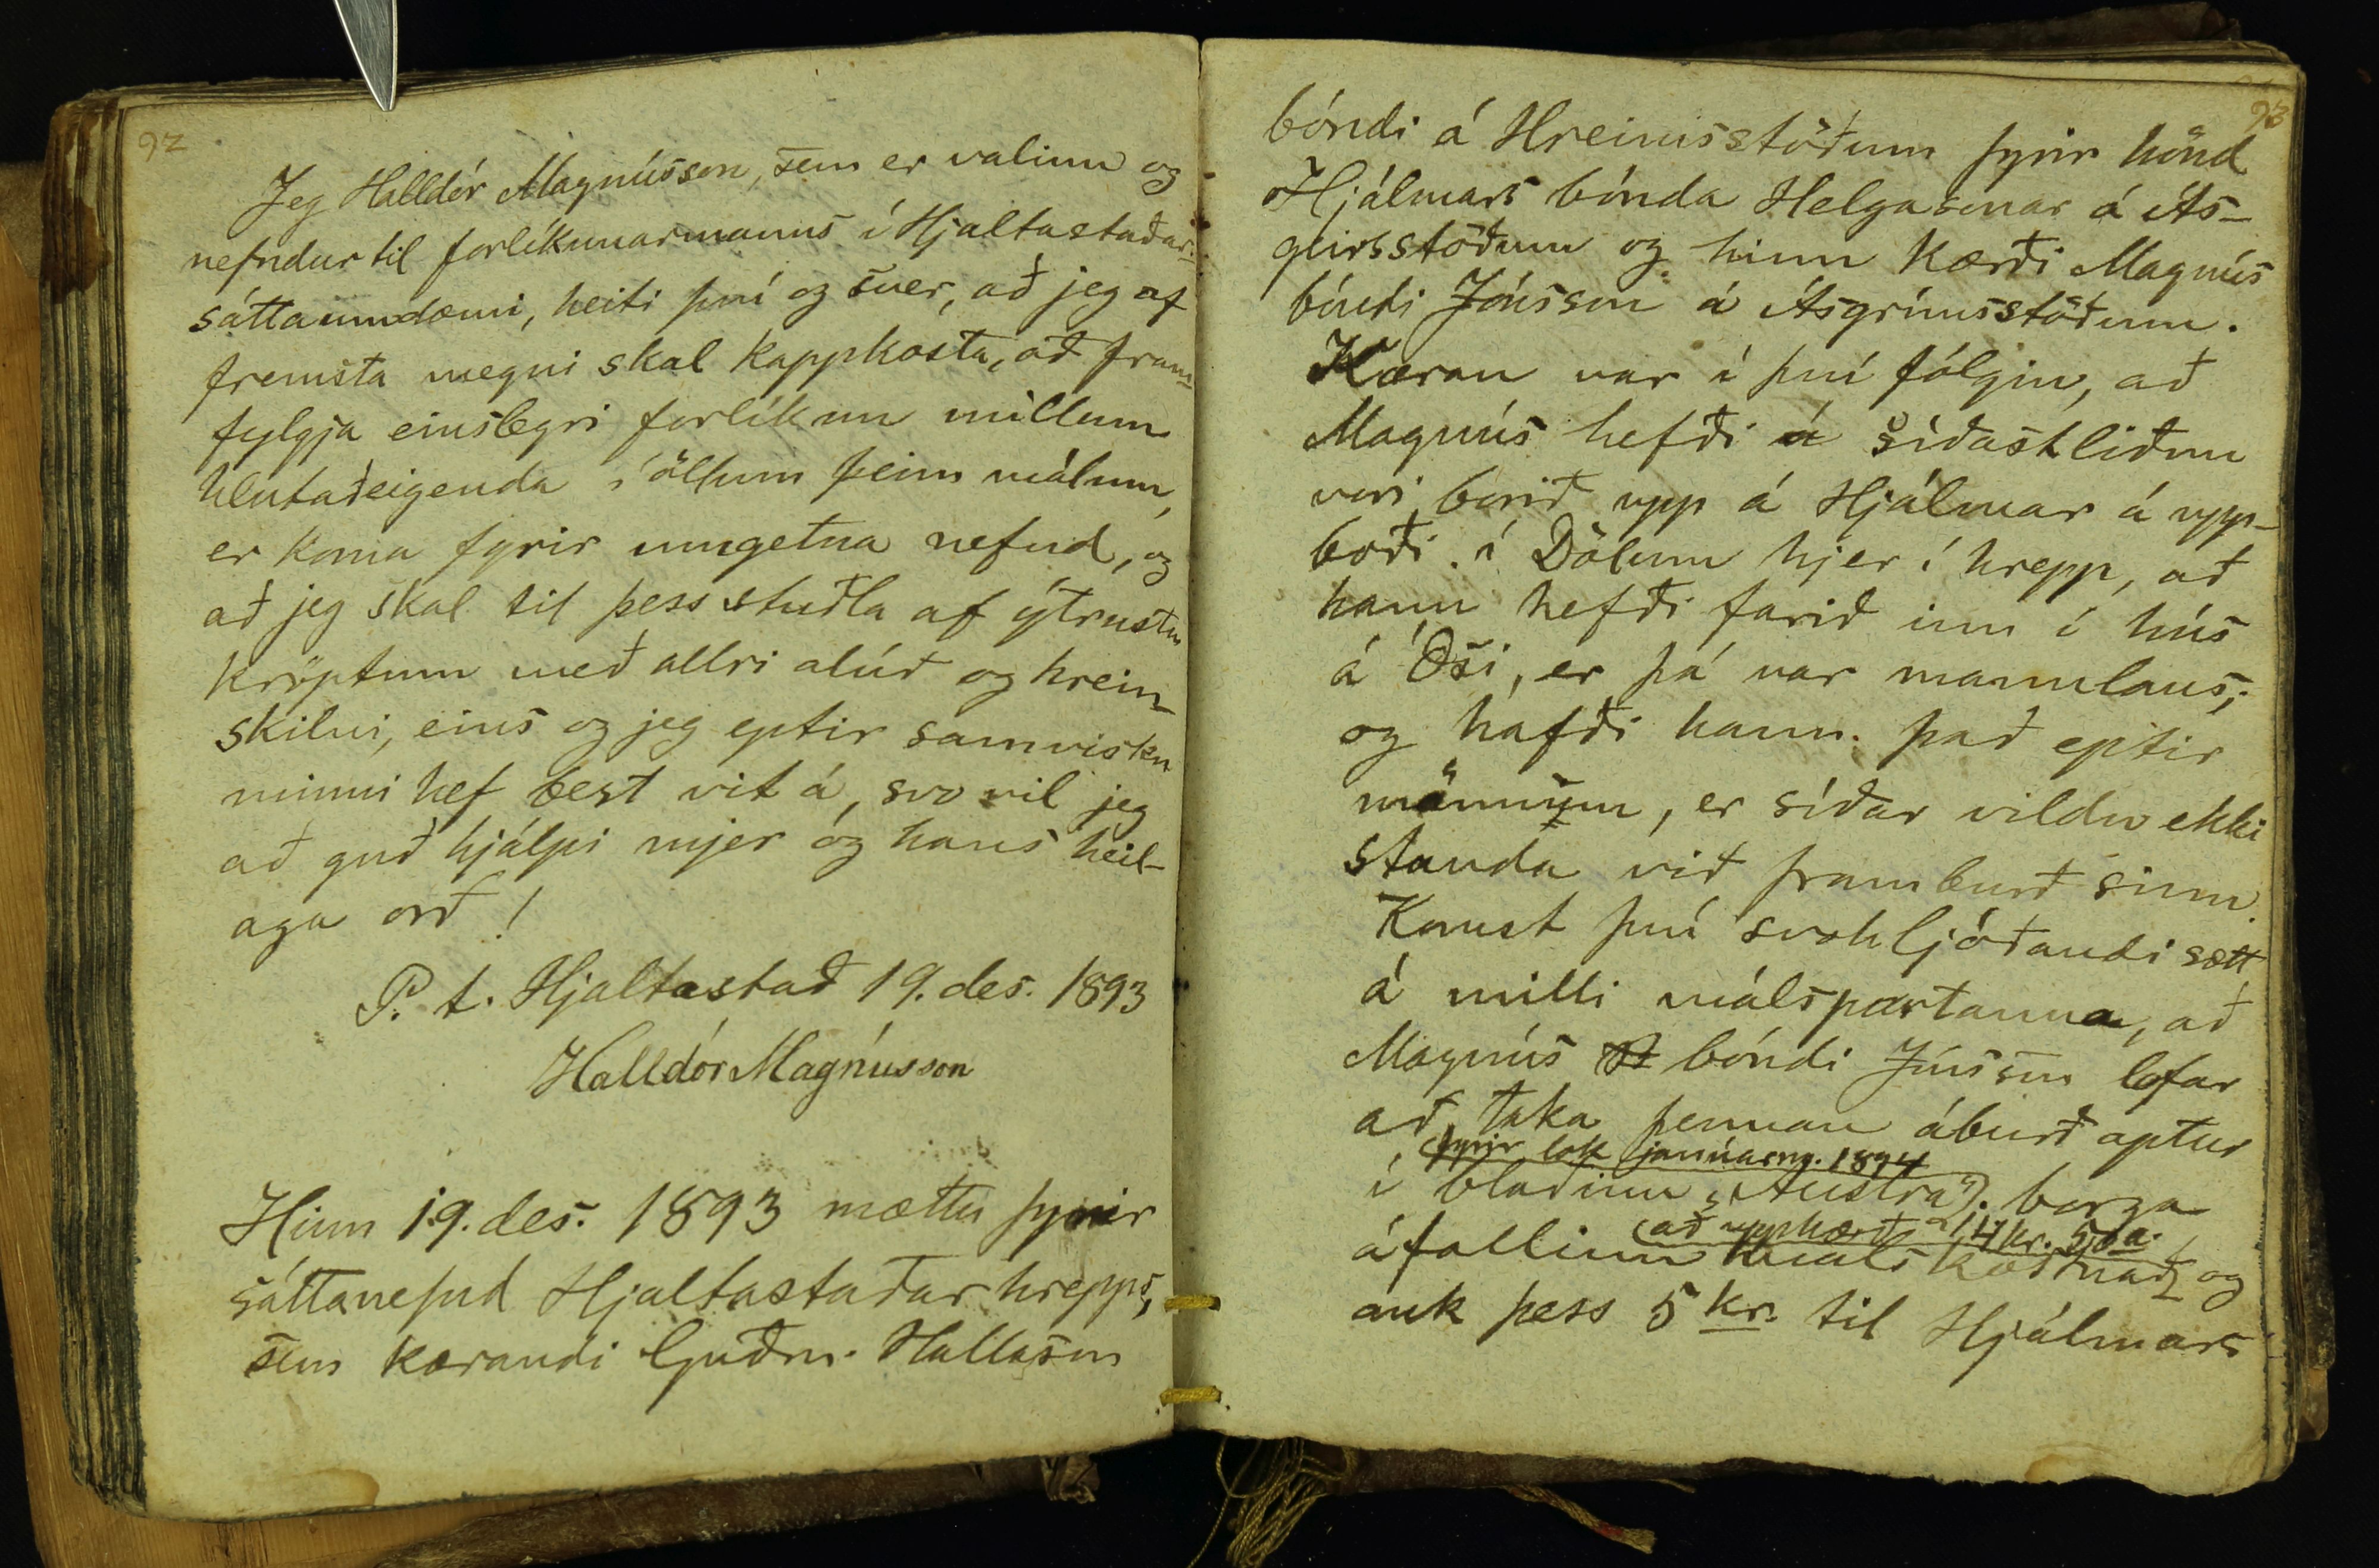 92
Jeg Halldór Magnússon, sem er valinn og
nefndur til forlíkunarmanns í Hjaltastaðar-
sáttaumdæmi, heiti því og sver, að jeg af
fremsta megni skal kappkosta, að fram-
fylgja einslegri forlíkun millum
hlutaðeigenda í öllum þeim málum,
er koma fyrir umgetna nefnd, og
að jeg skal til þess stuðla af ýtrustu
kröptum með allri alúð og hrein-
skilni, eins og jeg eptir samvisku
minni hef best vit á, svo vil jeg
að guð hjálpi mjer og hans heil-
aga orð!
P. t. Hjaltastað 19. des. 1893
Halldór Magnússon
Hinn 19. des. 1893 mættu fyrir
sáttanefnd Hjaltastaðarhrepps,
sem kærandi Guðm. Hallason
93
bóndi á Hreimsstöðum fyrir hönd
Hjálmars bónda Helgasonar á Ás-
geirsstöðum og hinn kærði Magnús
bóndi Jónsson á Ásgrímsstöðum.
Kæran var í því fólgin, að
Magnús hefði á síðastliðnu
vori borið upp á Hjálmar á upp-
boði í Dölum hjer í hrepp, að
hann hefði farið inn í hús
á Ósi, er þá var mannlaus;
og hafði hann það eptir
mönnum, er síðar vildu ekki
standa við framburð sinn.
Komst því svohljóðandi sætt
á milli málspartanna, að
Magnús bóndi Jónsson lofar
að taka þennan áburð aptur
fyrir lok janúarm. 1894
í blaðinu „Austra“, borga
(að upphæð 14 kr. 50 a.
áfallinn málskostnað, og
auk þess 5 kr. til Hjálmars